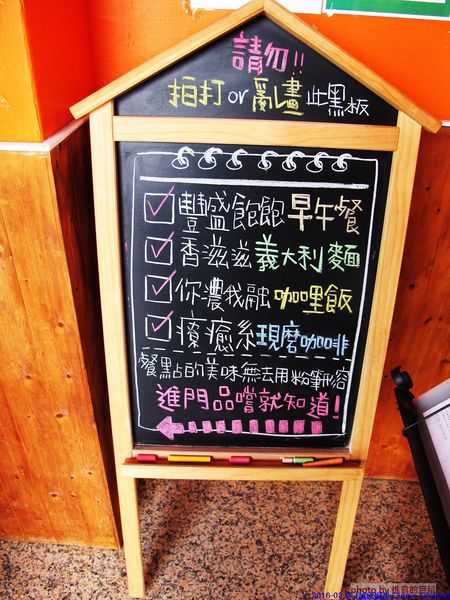 請勿!!
拍打or亂畫此黑板
豐盛飽飽早午餐
香滋滋義大利麵
你濃我融咖哩飯
療癒系現磨咖啡
餐點的美味無法用粉筆形容
進門品嚐就知道!
photo by 愛食的百川